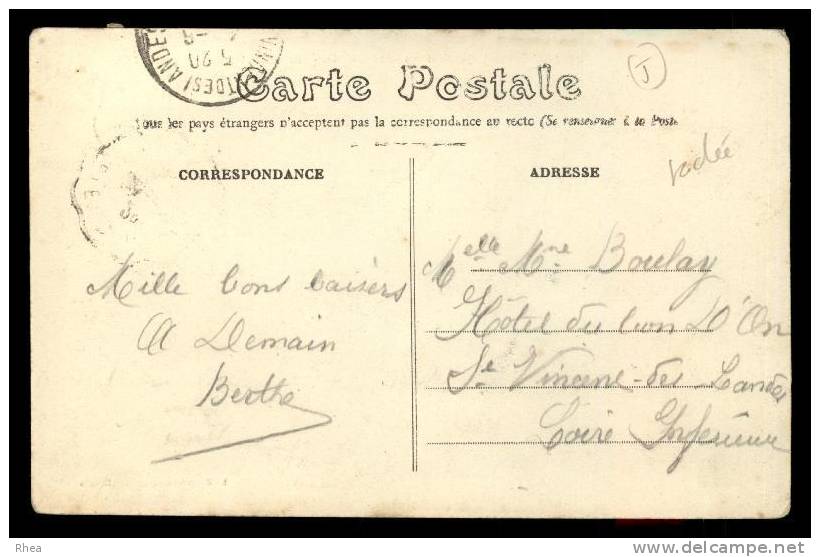 Carte Postale
Tous les pays étrangers n'acceptent pas la correspondance au recto (Se renseigner à la Poste
J
CORRESPONDANCE
ADRESSE
Mille bons baisers
A Demain
Berthe
Melle Mne Boulay
Hôtel du Lion D'Or
St Vincent-des Landes
Loire Inférieure
5 20
Rhea
www.delcampe.net